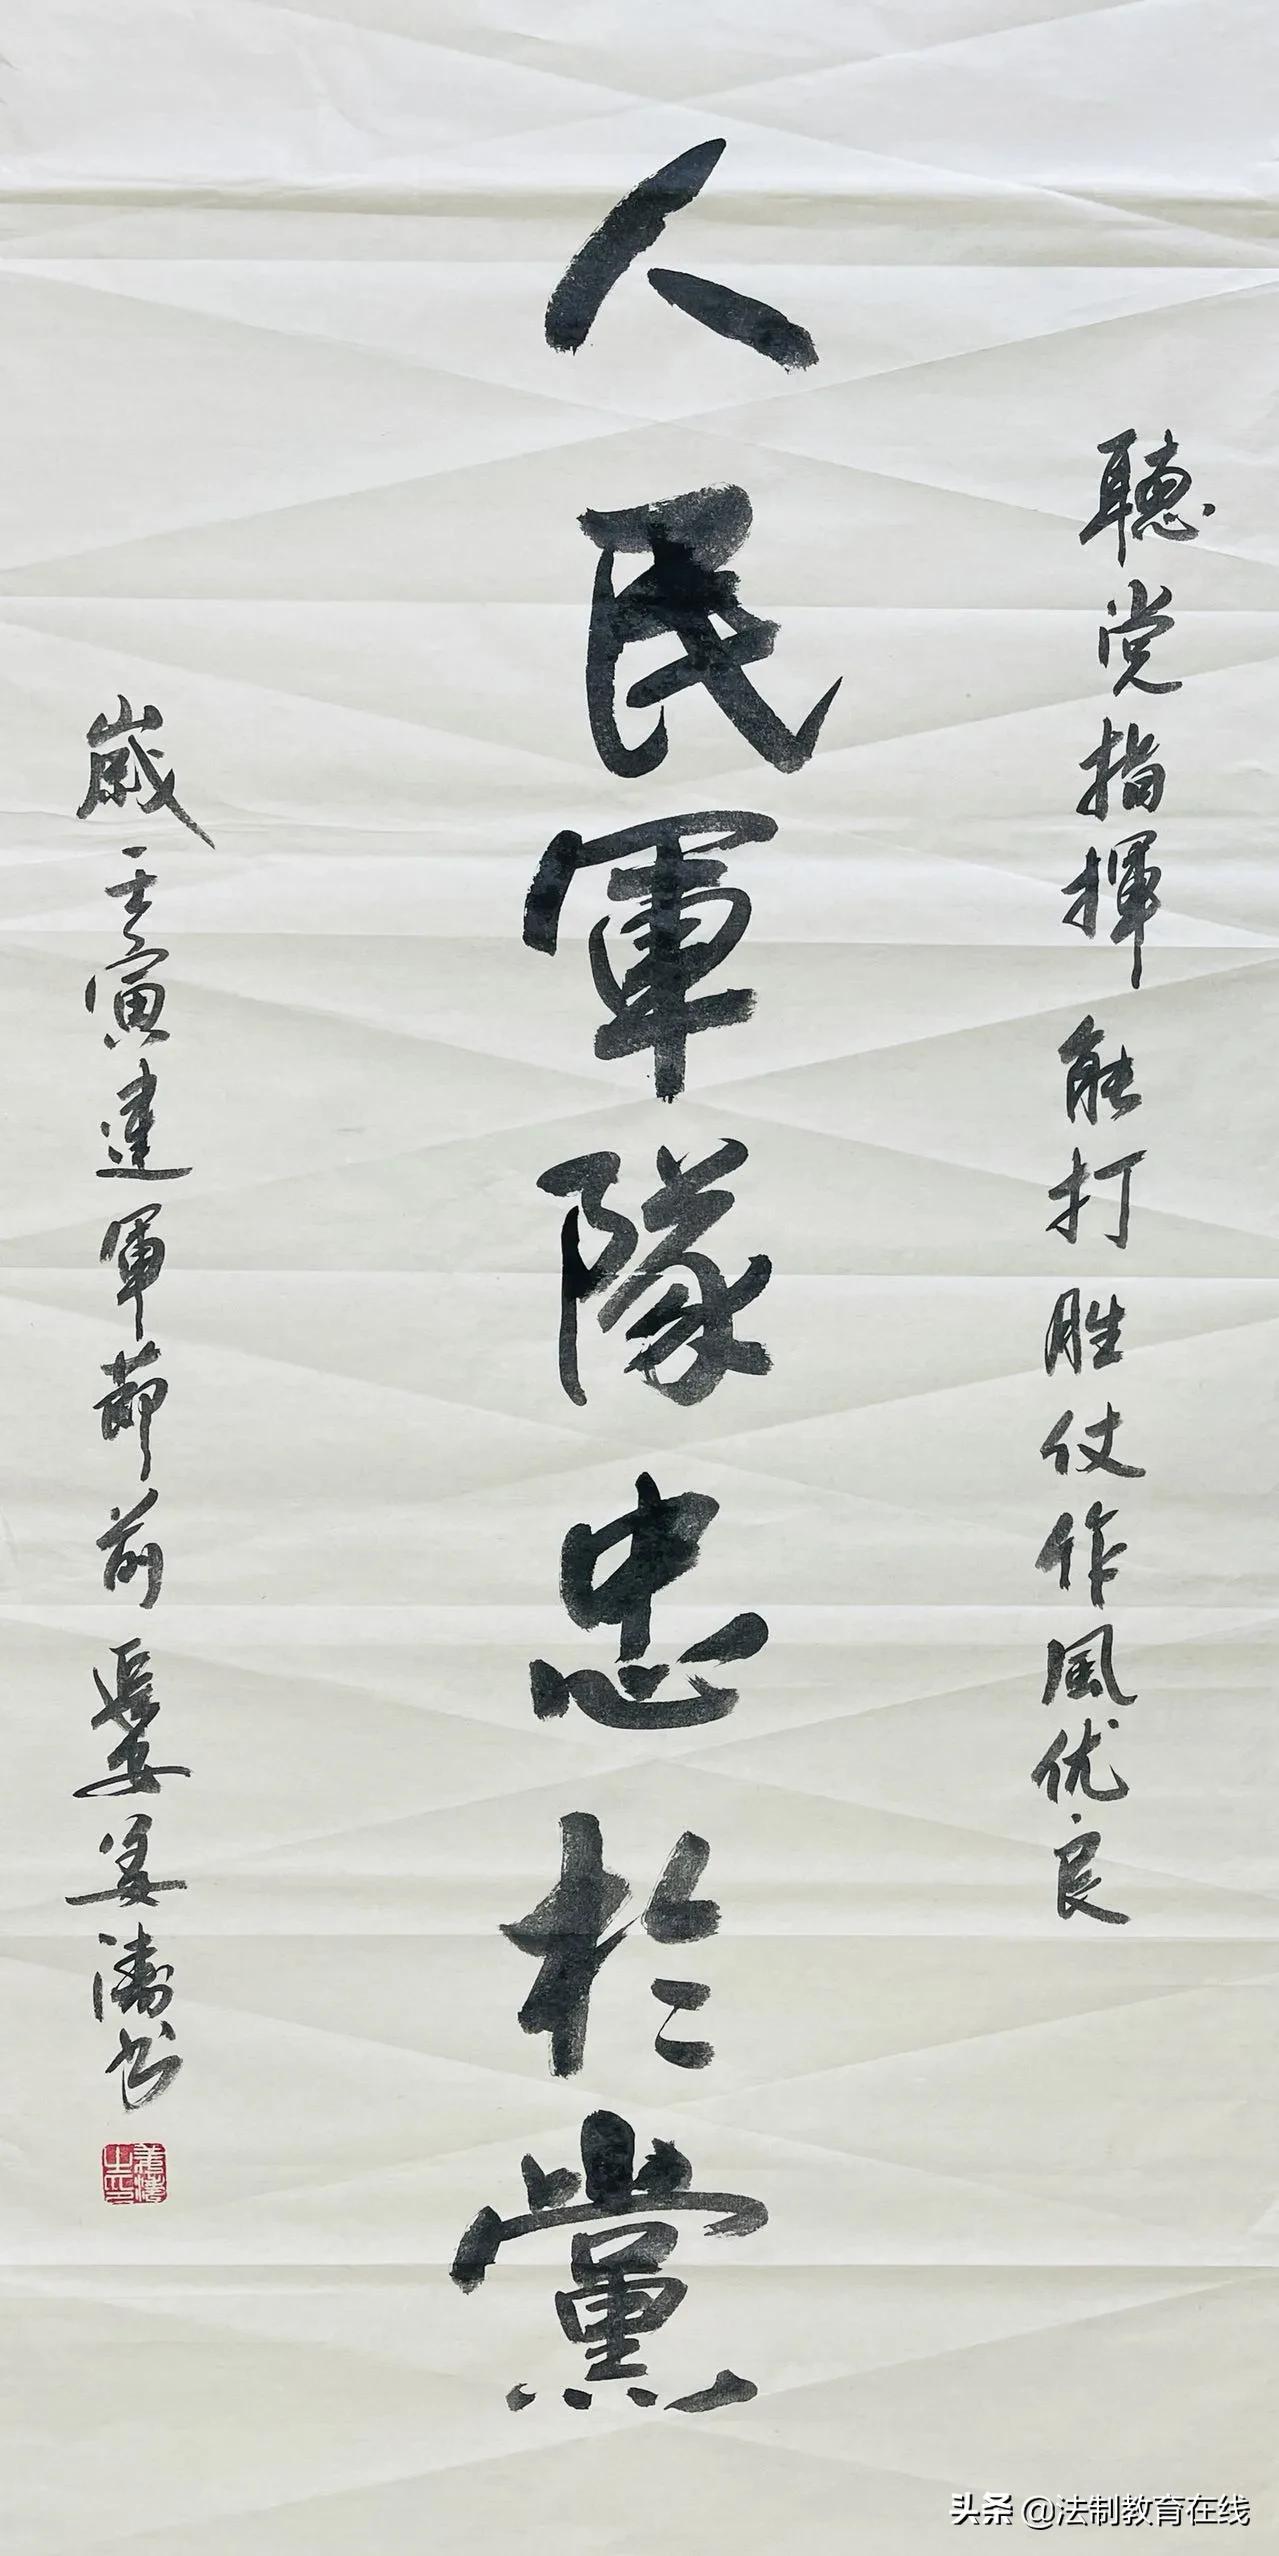 聽党指揮能打胜仗作風优良
人民軍隊忠於黨
歲壬寅建軍節前長安姜濤书
头条 @法制教育在线